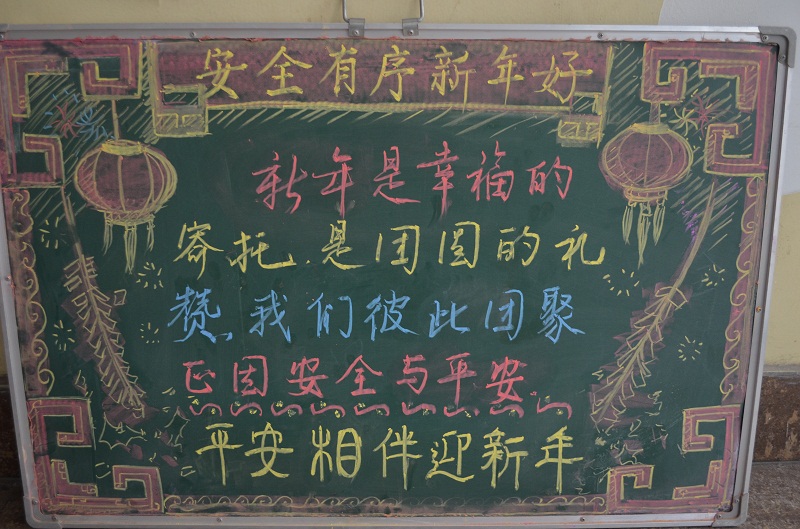 安全有序新年好
新年是幸福的
寄托.是团圆的礼
赞,我们彼此团聚
正因安全与平安
平安相伴迎新年